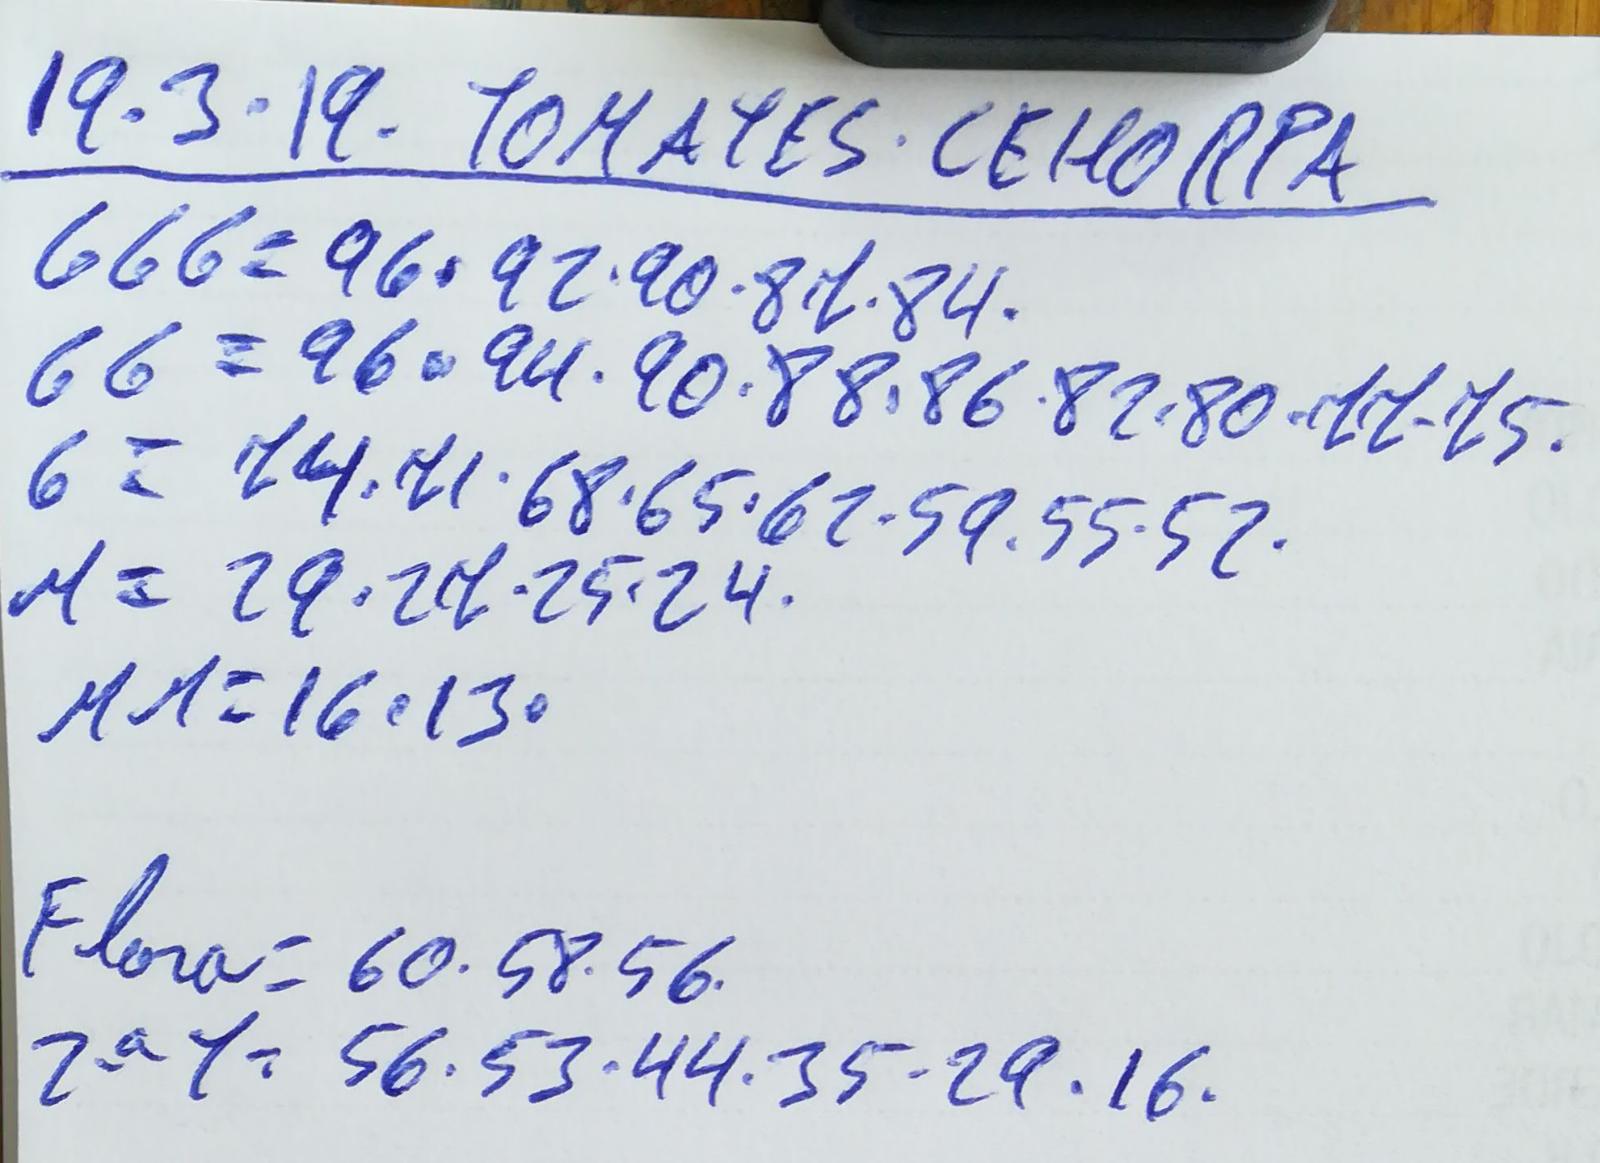 19.3.19. TOMATES. CEHORPA
GGG = 96. 92. 90. 87. 84.
GG = 96. 94. 90. 88. 86. 82. 80. 77. 75.
G = 74. 71. 68. 65. 62. 59. 55. 52.
M = 29. 27. 25. 24.
MM = 16. 13.
Flora = 60. 58. 56.
2ª T = 56. 53. 44. 35. 29. 16.